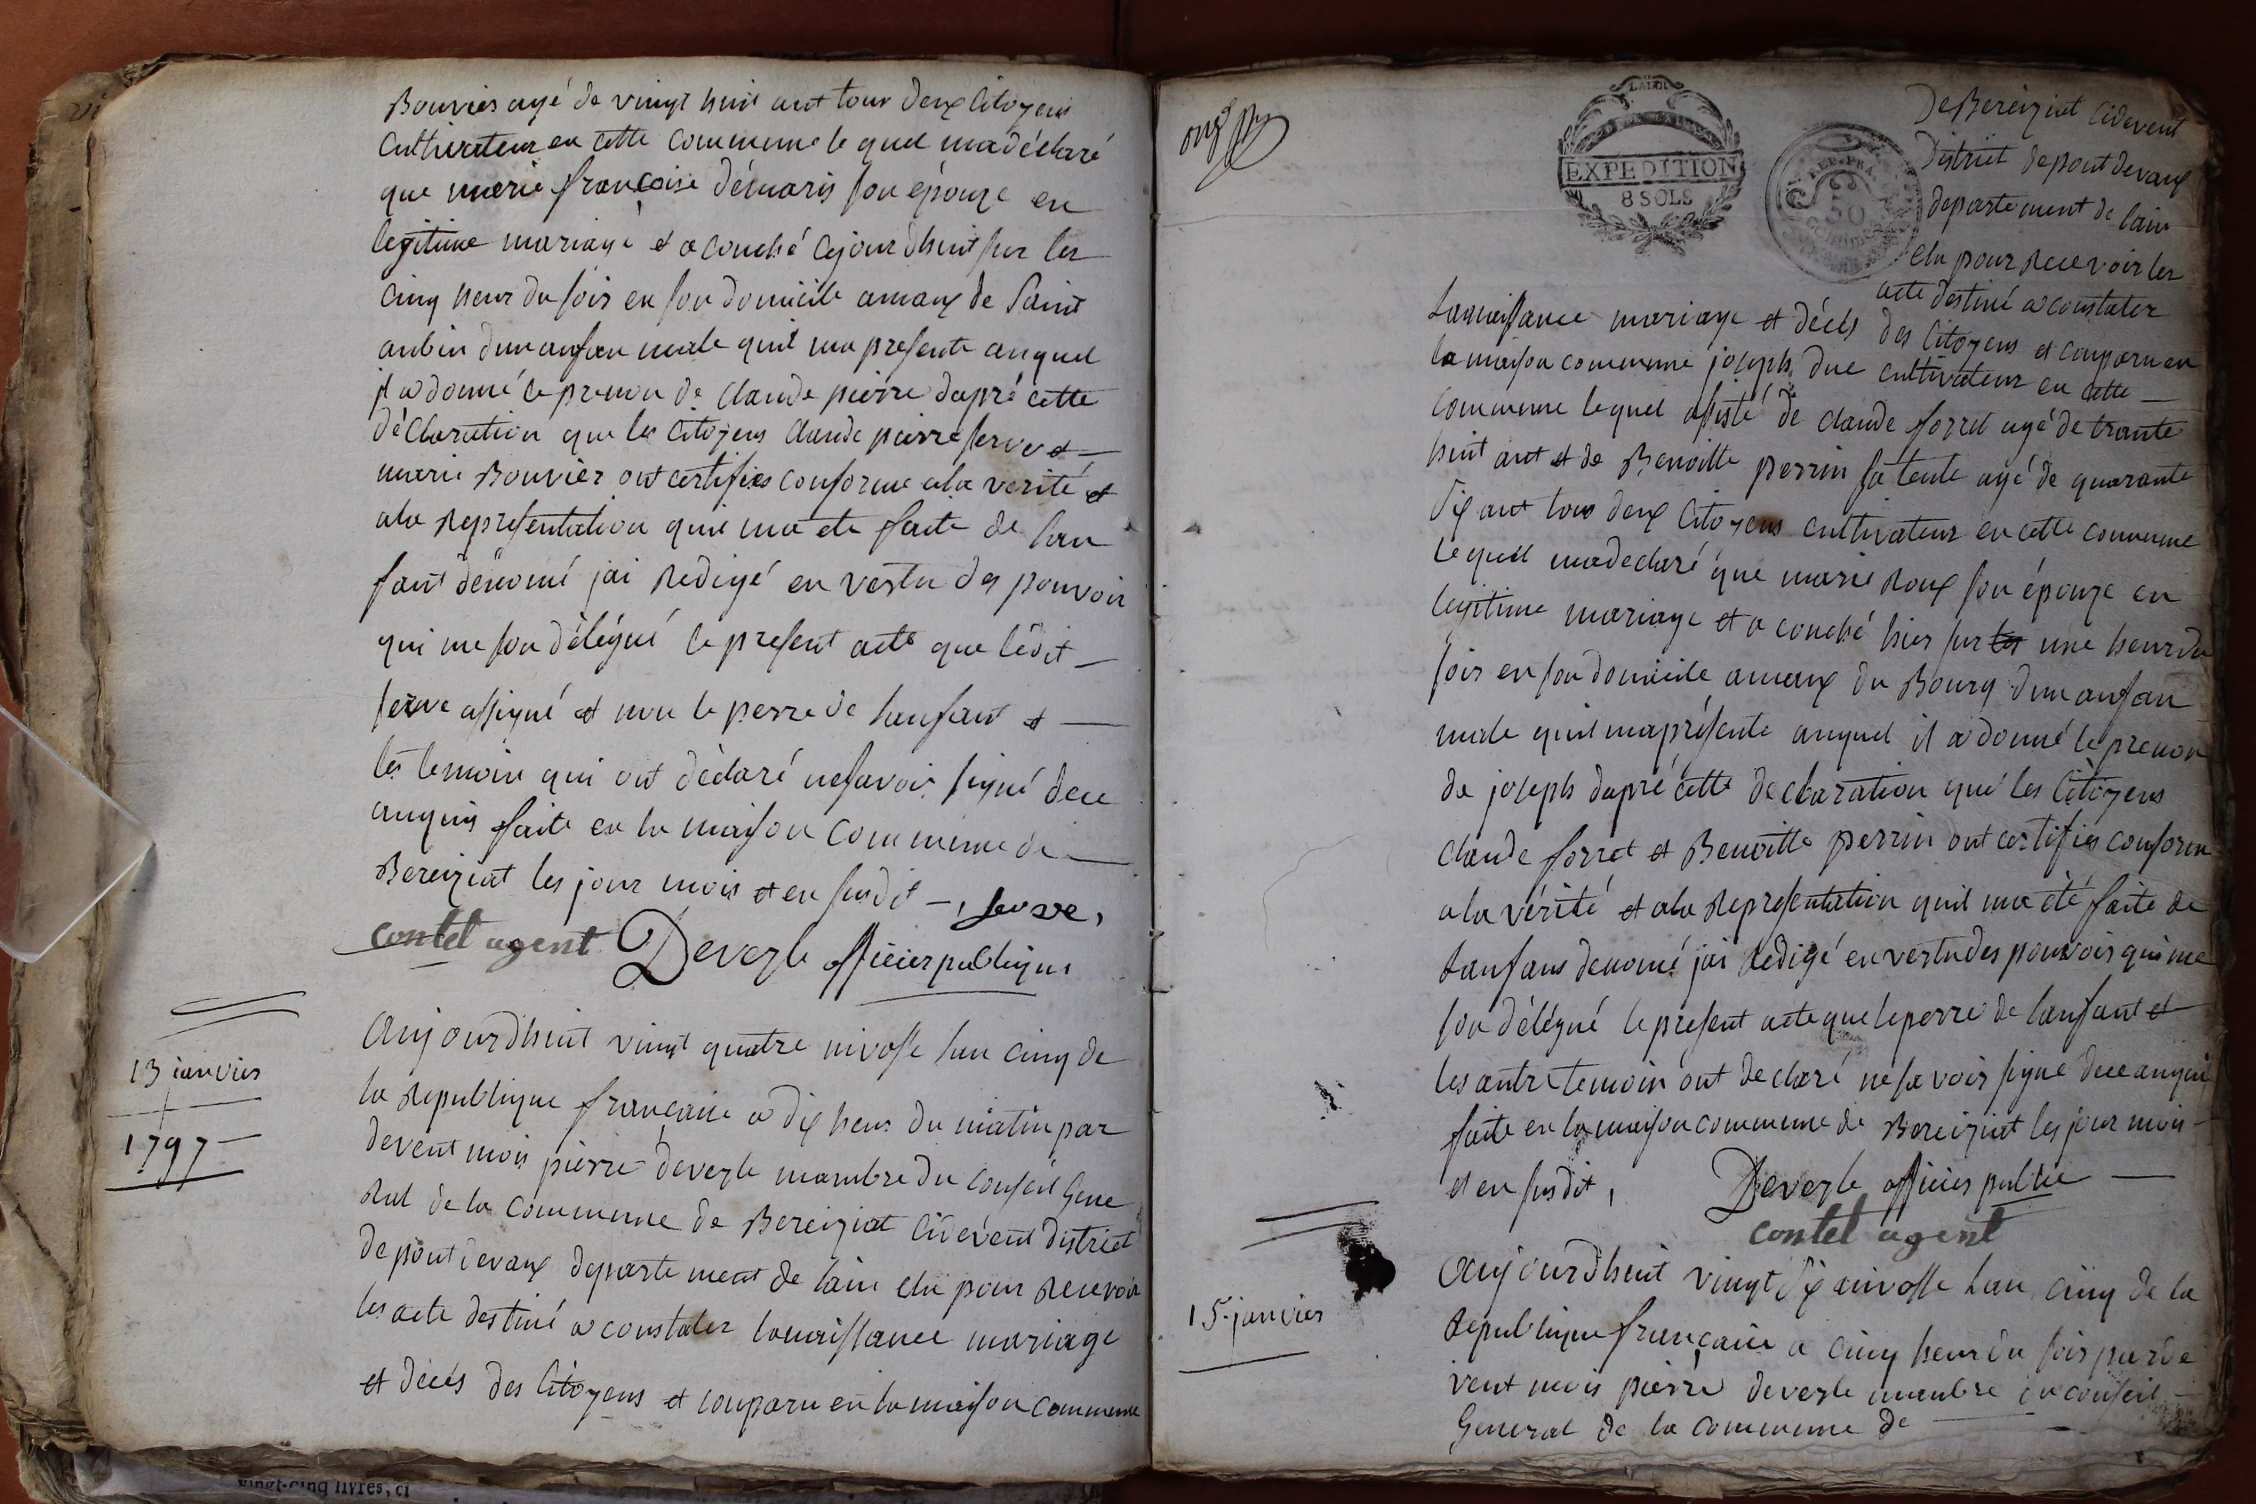 Bouvier agé de vingt huit ant tour deux Citoyens
Cultivateur en cette commune le quel ma déclaré
que marie françoise démaris son épouze en
legitime mariage et a couché cejourdhuit sur les
cinq heur du soir en son domicile amaux de Saint
aubin dun anfan male quil ma presente auquel
il a donné le prenon de Claude pierre dapré cette
déclaration que les Citoyens claude pierre ferve et
marie Bouvier ont certifies conforme a la verité et
ala Representation quil ma ete faite de lan
fant dénomé jai Redigé en vertu des pouvoir
qui me son délégué le present acte que ledit
ferve assigné et non le perre de lanfant et
les temoin qui ont déclaré nesavoir signé dece
anquis faite en la maison commune de
Bereiziat les jour mois et en susdit , ferve,
contet agent Deverle officier publique
13 janvier
1797
aujourdhuit vingt quatre nivosse lan cinq de
la Republique française a dix heur du matin par
devent mois pierre deverle mambre du conseil Gene
Ral de la commune de Bereiziat cidevent district
de pont devaux departement de lain elu pour Recevoir
les acte destiné a constater lanaissance mariage
et décés des Citoyens et conparu en la maison commune
EXPEDITION
8 SOLS
REP. FRA.
50
De Bereiziat cidevent
District de pont devaux
departement de lain
elu pour Recevoir les
acte destiné a constater
Lanaissance mariage et décés des Citoyens et conparu en
la maison commune joseph duc cultivateur en cette
commune lequel assisté de claude forret agé de trante
huit ant et de Benoitte perrin sa tente agé de quarante
dix ant tous deux Citoyens cultivateur en cette commune
lequel madeclaré que marie Roux son épouze en
legitime mariage et a couché hier sur les une heur du
soir en son domicile amaux du Bourg dun anfan
male quil maprésente auquel il a donné le prenon
de joseph dapré cette declaration que les Citoyens
claude forret et Benoitte perrin ont certifies conforme
a la vérité et ala Representation quil ma été faite de
lanfans denomé jai Redigé en vertu des pouvoir qui me
son délégué le present acte que le perre de lanfant et
les antre temoin ont declaré nesavoir signé dece anquis
faite en la maison commune de Bereiziat les jour mois
et en susdit , Deverle officier public
contet agent
15 janvier
aujourdhuit vingt six nivosse lan cinq de la
Republique française a cinq heur du soir parde
vent mois pierre deverle membre du conseil
General de la commune de
vingt-cinq livres, ci